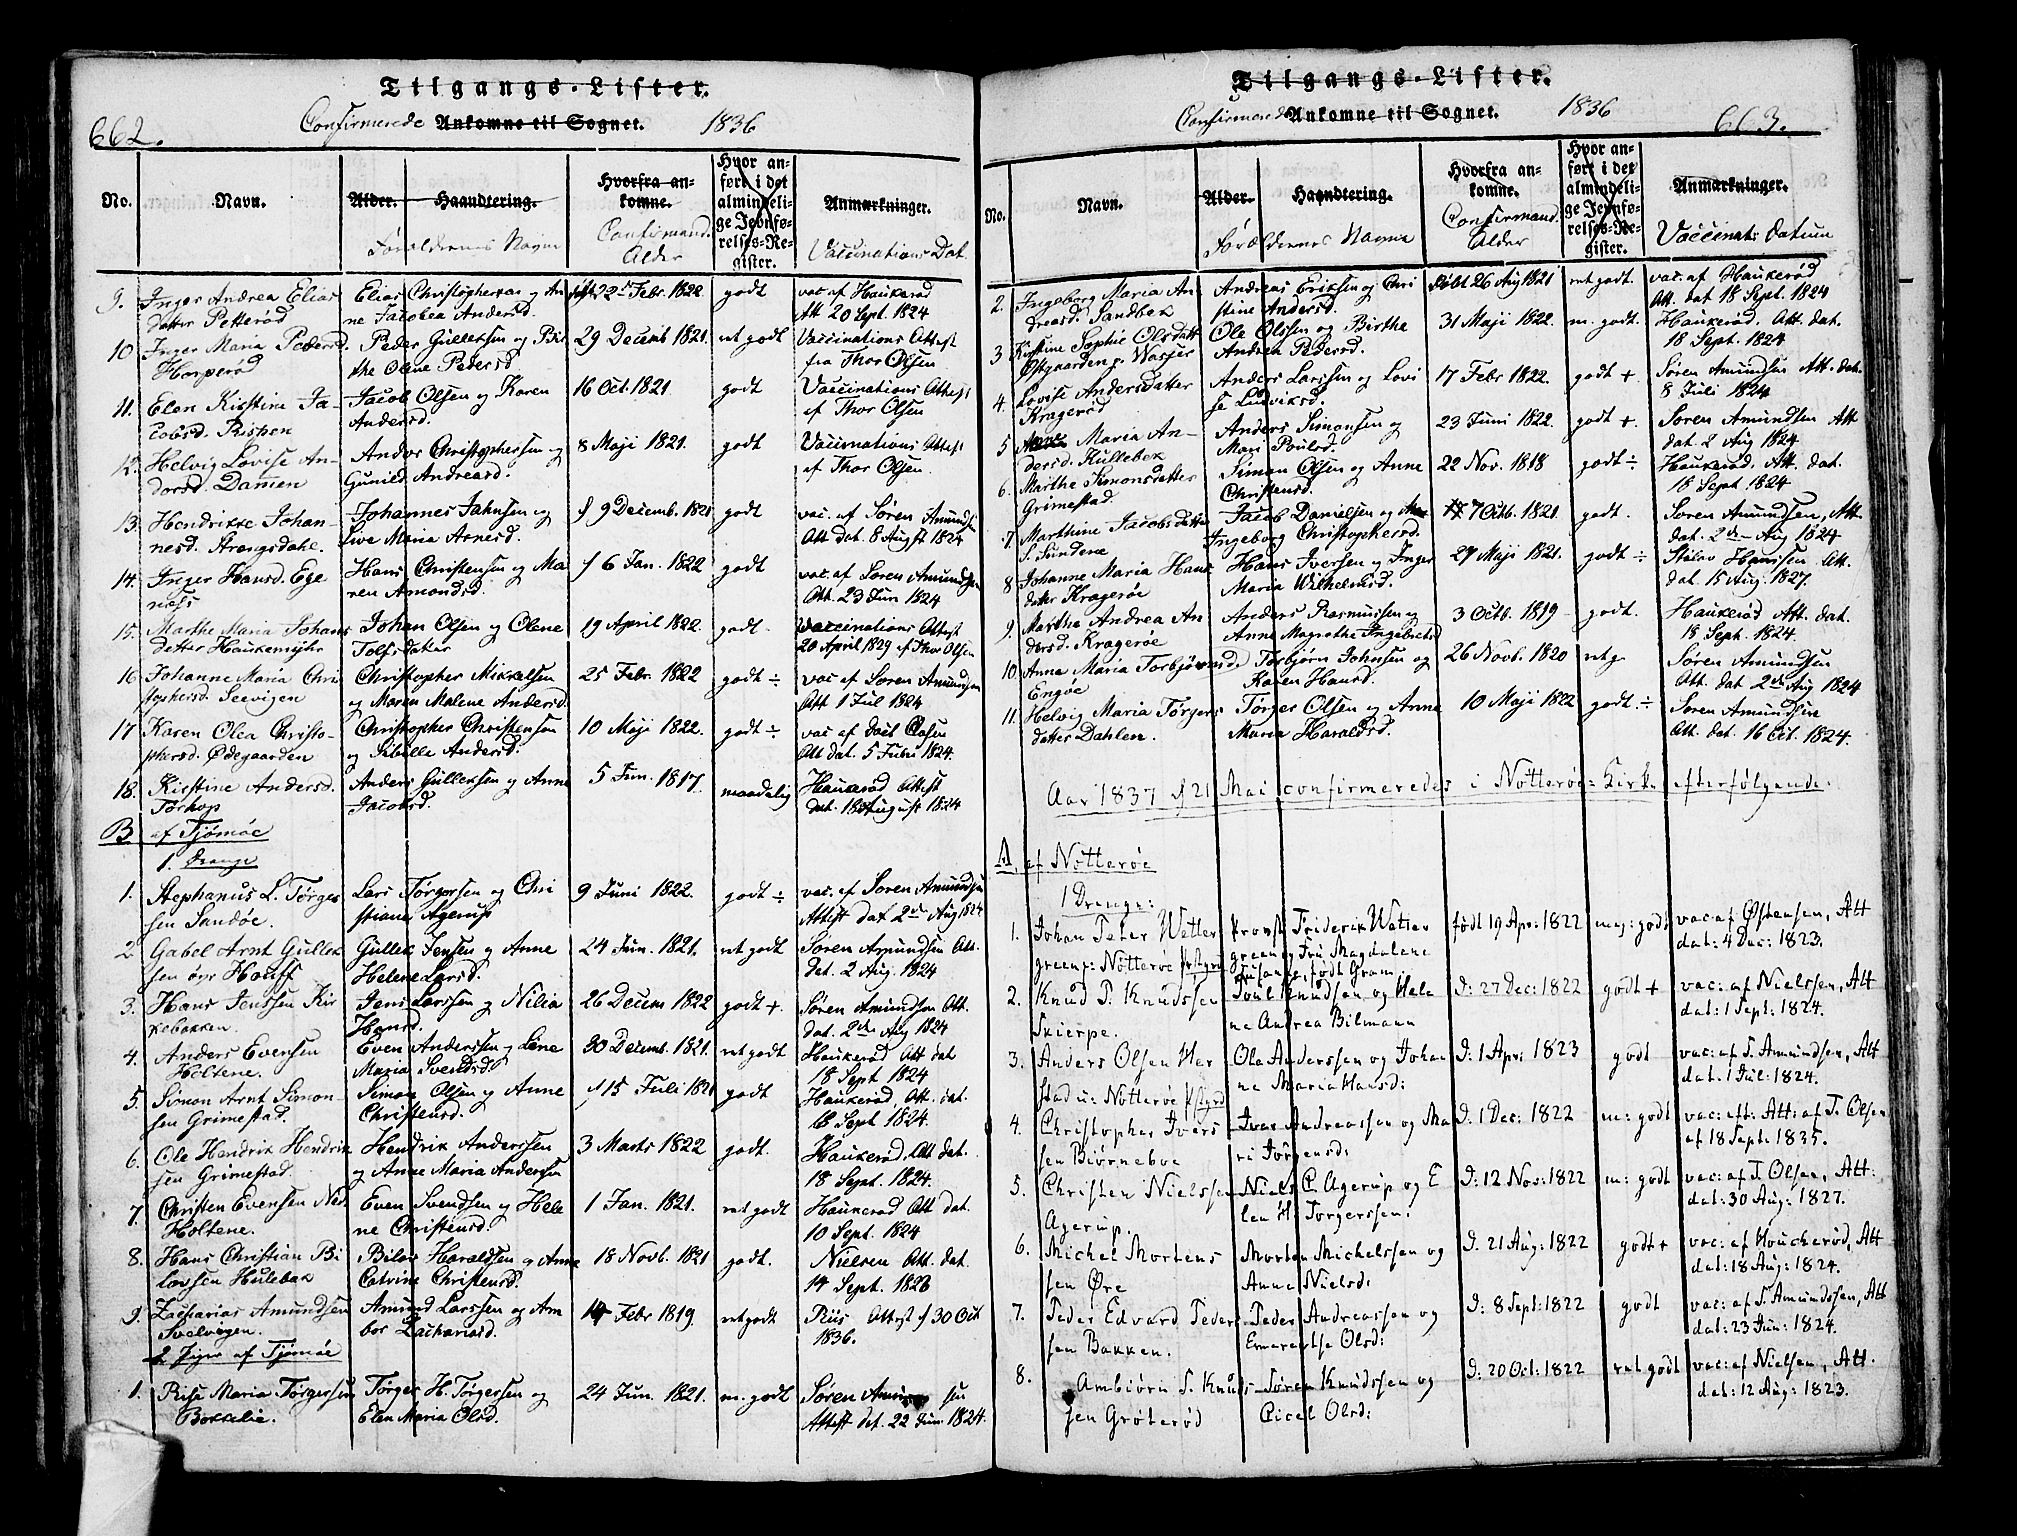 Tilgangs-Lister.
662. Confirmerede Ankomne til Sognet. 1836
No. Navn. Alder. Haandtering. Hvorfra ankomne. Hvor anført i det almindelige Jevnførelses-Register. Anmærkninger.
Forældrenes Navne Confirmand. Alder Vaccinations Dat.
9. Inger Andrea Elias Elias Christophersen og An født 22 Febr. 1822 godt vac. af Haukerød
datter Petterød ne Jacobea Andersd. Att 20 Sept. 1824
10 Inger Maria Pedersd. Peder Gulleksen og Bir 29 Decemb 1821. ret godt Vaccinations Attest
Horperød the Olene Pedersd fra Thor Olsen
11. Elen Kirstine Ja- Jacob Olsen og Karen 16 Oct. 1821. godt Vaccinations Attest
cobsd. Rispen Andersd. af Thor Olsen
12. Helvig Lovise An- Anders Christophersen og 8 Maji 1821. godt Vaccinations Attest
dersd. Damen Gunild Andreasd. af Thor Olsen.
13. Hendrikke Johan- Johannes Jahnsen og f 9 Decemb. 1821 godt vac. af Søren Amundsen
nesd. Strengsdahl. Live Maria Arnesd. Att dat. 8 Augst 1824
14. Inger Hansd. Ege Hans Christensen og Ma f 6 Jan. 1822 godt vac. af Søren Amundsen
ness ren Amondsd. Att. 23 Jun 1824
15. Marthe Maria Johans Johan Olsen og Olene 19 April 1822. godt. Vaccinations Attest
datter Haukemyhr Tolfsdatter 20 April 1829 af Thor Olsen
16 Johanne Maria Chri Christopher Mikkelsen 25 Febr. 1822 godt ÷ vac af Søren Amundsen
stophersd. Seevigen og Maren Malene Andersd. Att 1 Jul 1824
17 Karen Olea Christo- Christopher Christensen 10 Maji 1822. godt ÷ vac af
phersd. Ødegaarden og Sibille Andersd. Att dat. 5 Juni 1824.
18. Kirstine Andersd. Anders Gulleksen og Anne 5 Jun. 1817. maadelig Haukerød Attest
Torkop Jacobsd. dat. 18 August 1824
B af Tjømøe
1. Drenge
1. Stephanus L. Tørges Lars Tørgersen og Chri 9 Juni 1822. godt ÷ vac. af Søren Amundsen
sen Sandøe. stiane Agerup Attest dat 2den Aug 1824
2 Gabel Arnt Gullek Gullek Jensen og Anne 24 Jun. 1821. ret godt Søren Amundsen Att.
sen øvr Houff Helene Larsd. dat. 2 Aug. 1824
3. Hans Jenssen Kir Jens Larssen og Nilia 26 Decem 1822 godt +. Søren Amundsen Att.
kebakken. Hansd. dat. 2den Aug 1824
4. Anders Evensen Even Anderssen og Lene 30 Decemb. 1821. ret godt Haukerød Att dat
Holtene. Maria Svendsd. 18 Sept 1824
5. Simon Arnt Simon- Simon Olsen og Anne f 15 Juli 1821 godt Haukerød Att. dat.
sen Grimestad. Christensd. 18 Sept 1824.
6. Ole Hendrik Hendrik Hendrik Anderssen 3 Marts 1822 godt. Haukerød. Att dat.
sen Grimestad. og Anne Maria Andersen 18 Sept. 1824.
7. Christen Evensen Ned. Even Svendsen og Hele 1 Jan. 1821. ret godt Haukerød Att dat.
Holtene. ne Christensd. 10 Sept. 1824
8. Hans Christian Bi Bilov Haraldsen og Anne 18 Novb. 1821 godt. Nielsen Att. dat.
lovsen Hulebak Catrine Christensd. 14 Sept. 1826
9. Zacharias Amundsen Amund Larssen og Am Febr 1819 ret godt Riis Attest f 30 Oct
Svelvigen. bor Zachariasd. 1836.
2 Piger af Tjømøe
1. Rise Maria Tørgersen Tørger H. Tørgersen og 24 Jun. 1821. m. godt Søren Amundsen
Bokkelie. Elen Maria Olsd. Attest dat. 22 Jun. 1824.
Tilgangs-Lister.
Confirmerede Ankomne til Sognet. 1836 663.
No. Navn. Alder. Haandtering. Hvorfra ankomne. Hvor anført i det almindelige Jevnførelses-Register. Anmærkninger.
Forældrenes Navne Confirmand. Alder Vaccinat: Datum
2. Ingeborg Maria An Andreas Eriksen og Chri født 26 Aug 1821 ret godt. vac. af Haukerød
dreasd. Sandbek stine Andersd. Att. dat 18 Sept. 1824
3 Kirstine Sophie Olsdatt Ole Olssen og Birthe 31 Maji 1822. m. godt. Haukerød. Att. dat.
Østgaarden p. Wasser Andrea Pedersd. 18 Sept. 1824
4. Lovise Andersdatter Anders Larssen og Lovi 17 Febr 1822. godt + Søren Amundsen Att. dat.
Kragerød se Ludviksd. 8 Juli 1824
5 Maria An- Anders Simonsen og 23 Juni 1822. godt +. Søren Amundsen Att
dersd. Kullebek Mari Poulsd. dat. 2 Aug 1824.
6. Marthe Simonsdatter Simon Olsen og Anne 22 Nov. 1818 godt ÷ Haukerød. Att. dat.
Grimestad. Christensd. 18 Sept. 1824
7. Marthine Jacobsdatter Jacob Danielsen og 7 Octb. 1821. godt. Søren Amundsen, Att.
S. Sundene Ingeborg Christophersd. dat. 2den Aug 1824
8 Johanne Maria Hans Hans Iversen og Inger 27 Maji 1821. godt ÷ Hanssen Att.
datter Kragerøe Maria Wilhelmsd. dat. 15 Aug. 1827.
9. Marthe Andrea An Anders Rasmussen og 3 Octb. 1819 godt. Haukerød Att dat.
dersd. Kragerøe Anne Magrethe Ingebretsd 18 Sept. 1824.
10 Anne Maria Torbjørnsd Torbjørn Johnsen og 26 Novb. 1820 ret g Søren Amundsen
Engøe Karen Hansd. Att. dat 2den Aug 1824
11. Helvig Maria Tørgers Tørger Olsen og Anne 10 Maji 1822 godt. ÷ Søren Amundsen
datter Dahlen. Maria Haraldsd. Att. dat. 16 Oct. 1824.
Aar 1837 d 21 Mai confirmeredes i Nøtterøe Kirke efterfølgende:
A. af Nøtterøe
1 Drenge:
1. Johan Peter Wetter Provst Friderik Wetter født 19 Apr: 1822 meg: godt vac af Østensen, Att
green: Nøtterøe Præstgrd green og Fru Magdalene dat: 4 Dec: 1823.
Susanne, født Gram
2. Knud P. Knudssen Poul Knudsen og Hele d: 27 Dec: 1822 godt + vac: af Nielssen, Att
Skierpe. ne Andrea Bilmann dat: 1 Sept: 1824.
3. Anders Olsen Her Ole Anderssen og Johan d: 1 Apr: 1823 godt vac: af S. Amundsen, Att
stad u: Nøtterøe Pstgrd ne Maria Hansd: dat: 1 Jul: 1824.
4. Christopher Ivers Ivar Andreassen og Ma d: 1 Dec: 1822 m: godt vac: eft: Att: af T. Olsen
sen Biørneboe ri Jørgensd: af 18 Sept: 1835.
5. Christen Nielssen Niels C. Agerup og E d: 12 Nov: 1822 m: godt vac: af T. Olsen, Att:
Agerup. len H. Tørgerssen. dat: 30 Aug: 1827.
6. Michel Mortens Morten Michelssen og d: 21 Aug: 1822 godt + vac: af Houckerød, Att
sen Øre Anne Nielsd: dat: 18 Aug: 1824.
7. Peder Edvard Peder Peder Andreassen og d: 8 Sept: 1822 godt vac: af S. Amundssen, Att
sen Bakken. Emerentse Olsd: dat: 23 Jun: 1824.
8. Ambiørn S. Knuds Søren Knudssen og d: 20 Oct: 1822 ret godt vac: af Nielsen, Att.
sen Grøterød Cicel Olsd: dat: 12 Aug: 1823.